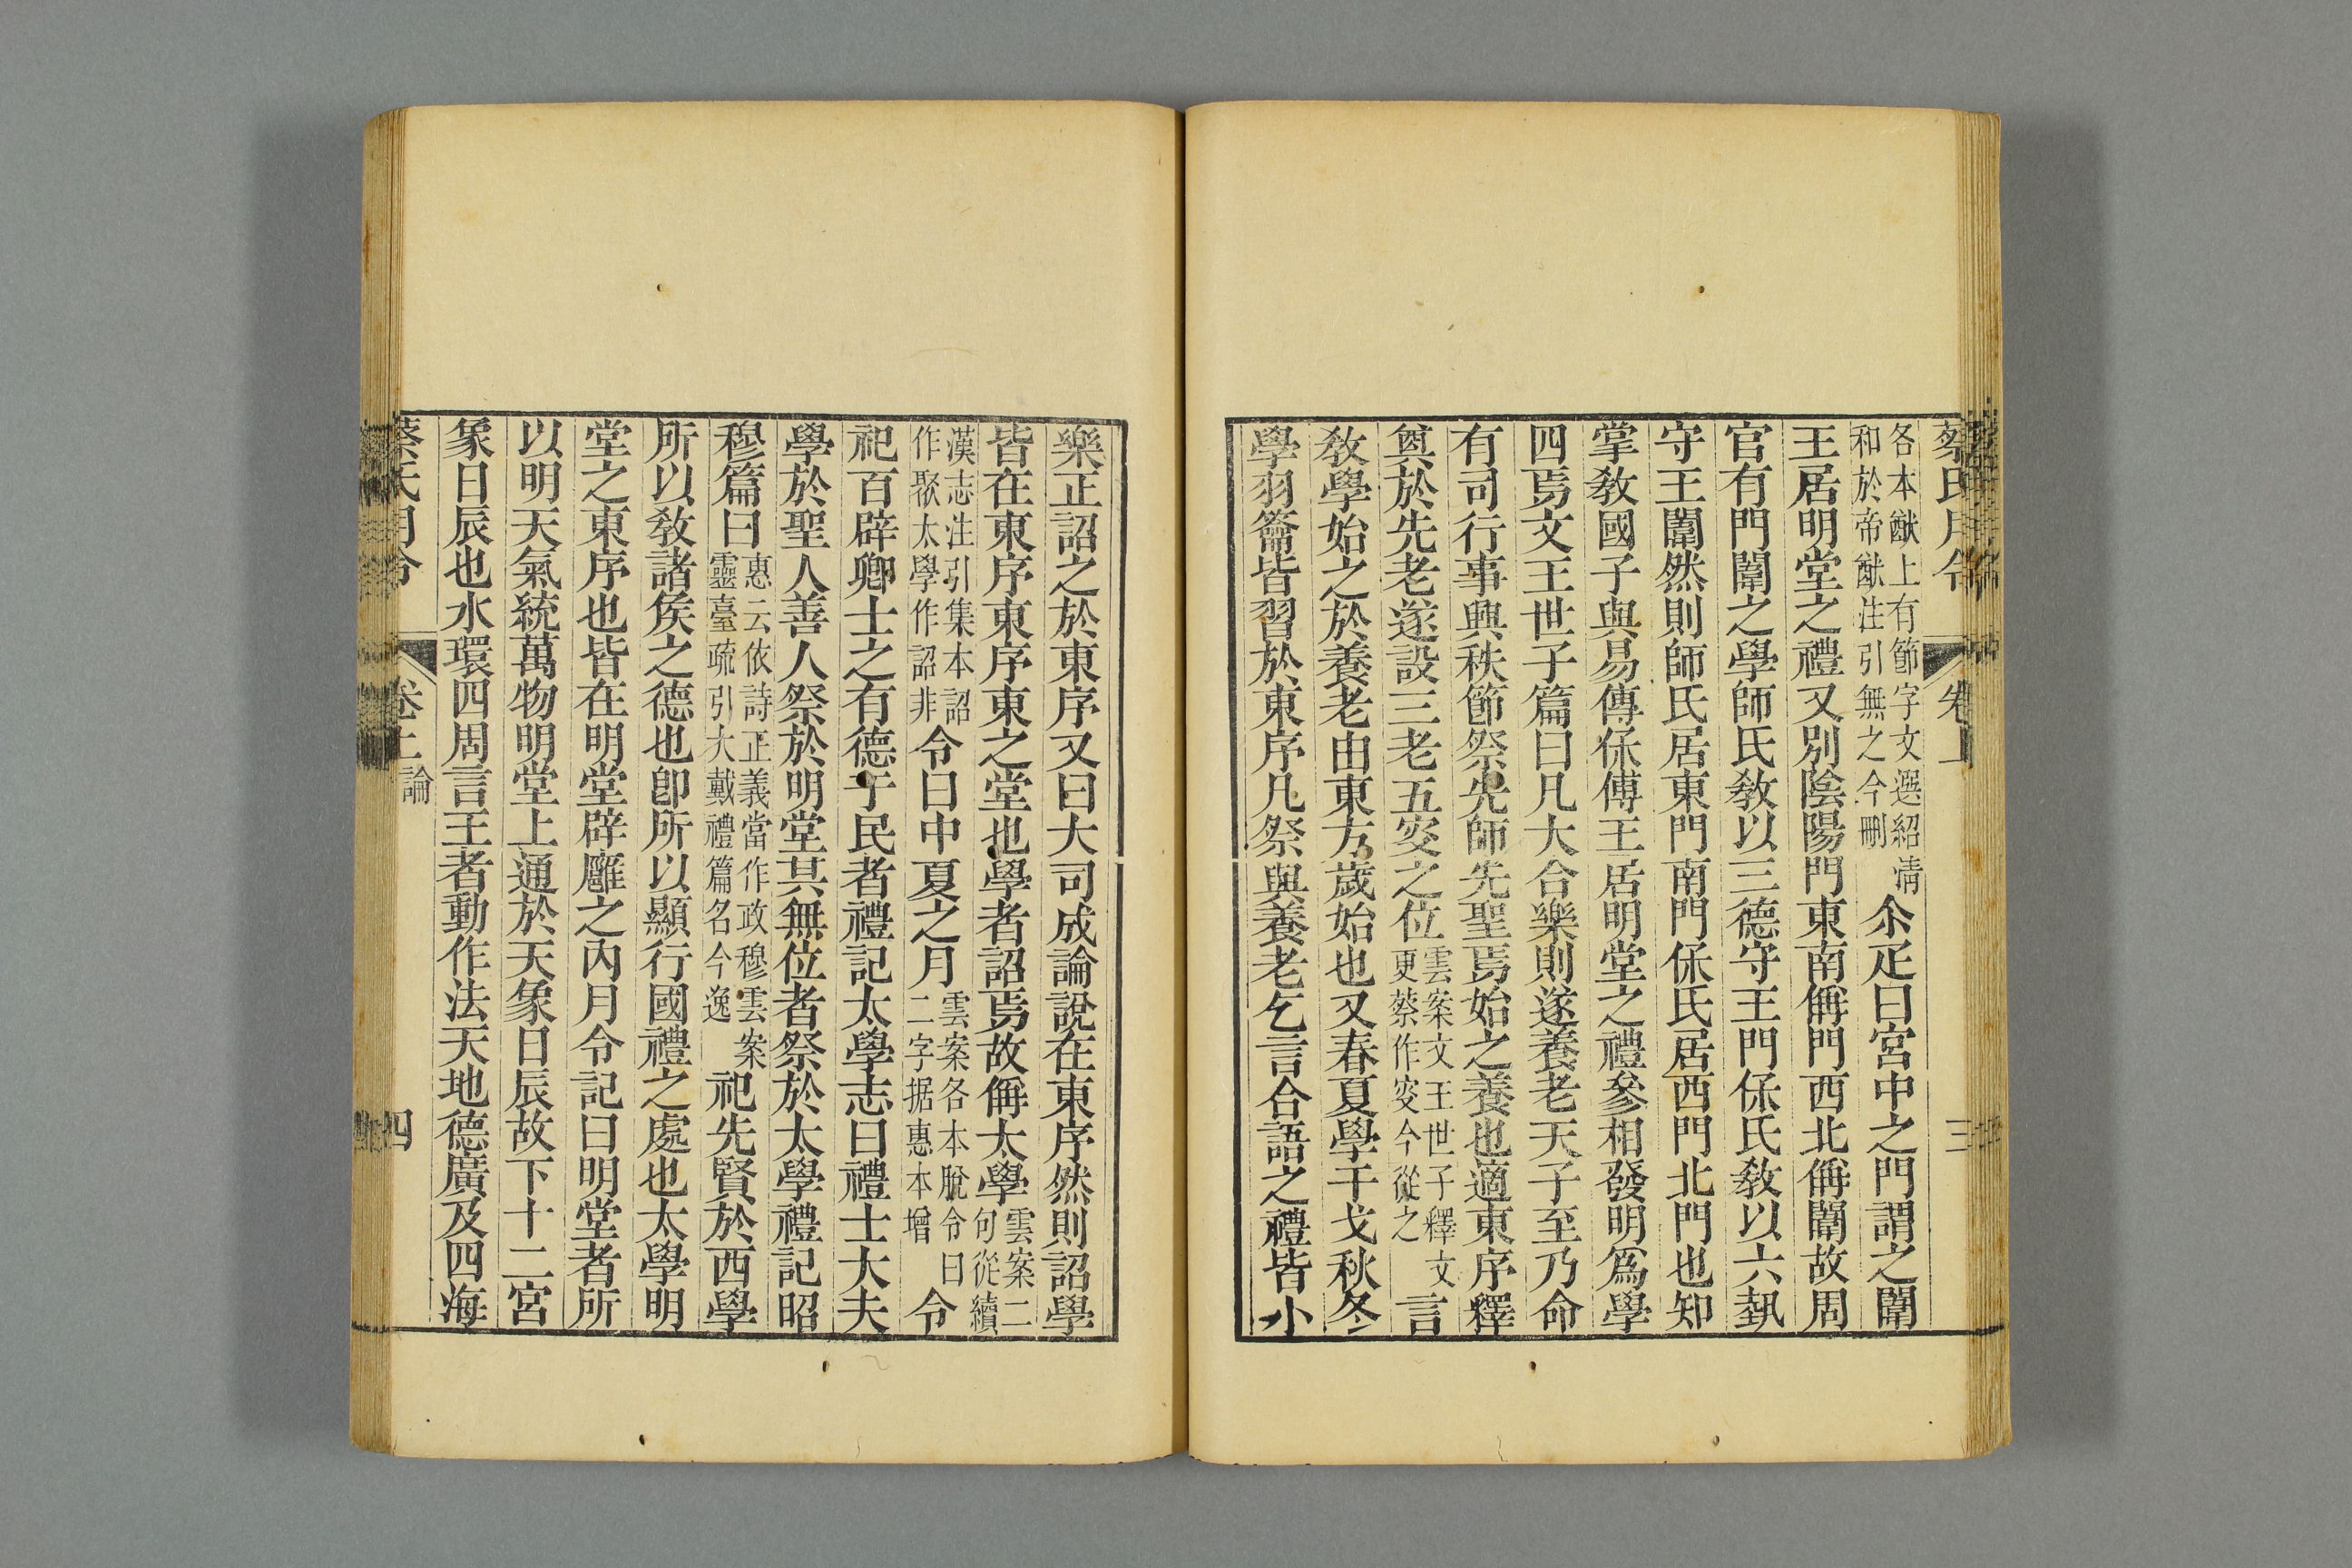 蔡氏月令
卷上
三
各本猷上有節字文選紹凊
和於帝猷注引無之今刪
尒疋曰宮中之門謂之闈
王居明堂之禮又別陰陽門東南偁門西北偁闈故周
官有門闈之學師氏敎以三德守王門保氏敎以六埶
守王闈然則師氏居東門南門保氏居西門北門也知
掌敎國子與易傳保傅王居明堂之禮參相發明爲學
四焉文王世子篇曰凡大合樂則遂養老天子至乃命
有司行事興秩節祭先師先聖焉始之養也適東序釋
奠於先老遂設三老五叜之位
雲案文王世子釋文
更蔡作叜今從之
言
敎學始之於養老由東方歲始也又春夏學干戈秋冬
學羽籥皆習於東序凡祭與養老乞言合語之禮皆小
樂正詔之於東序又曰大司成論說在東序然則詔學
皆在東序東序東之堂也學者詔焉故偁太學
雲案二
句從續
漢志注引集本詔
作聚太學作詔非
令曰中夏之月
雲案各本脫令曰
二字据惠本增
令
祀百辟卿士之有德于民者禮記太學志曰禮士大夫
學於聖人善人祭於明堂其無位者祭於太學禮記昭
穆篇曰
惠云依詩正義當作政穆雲案
靈臺疏引大戴禮篇名今逸
祀先賢於西學
所以敎諸矦之德也卽所以顯行國禮之處也太學明
堂之東序也皆在明堂辟廱之內月令記曰明堂者所
以明天氣統萬物明堂上通於天象日辰故下十二宮
象日辰也水環四周言王者動作法天地德廣及四海
蔡氏月令
卷上 論
四